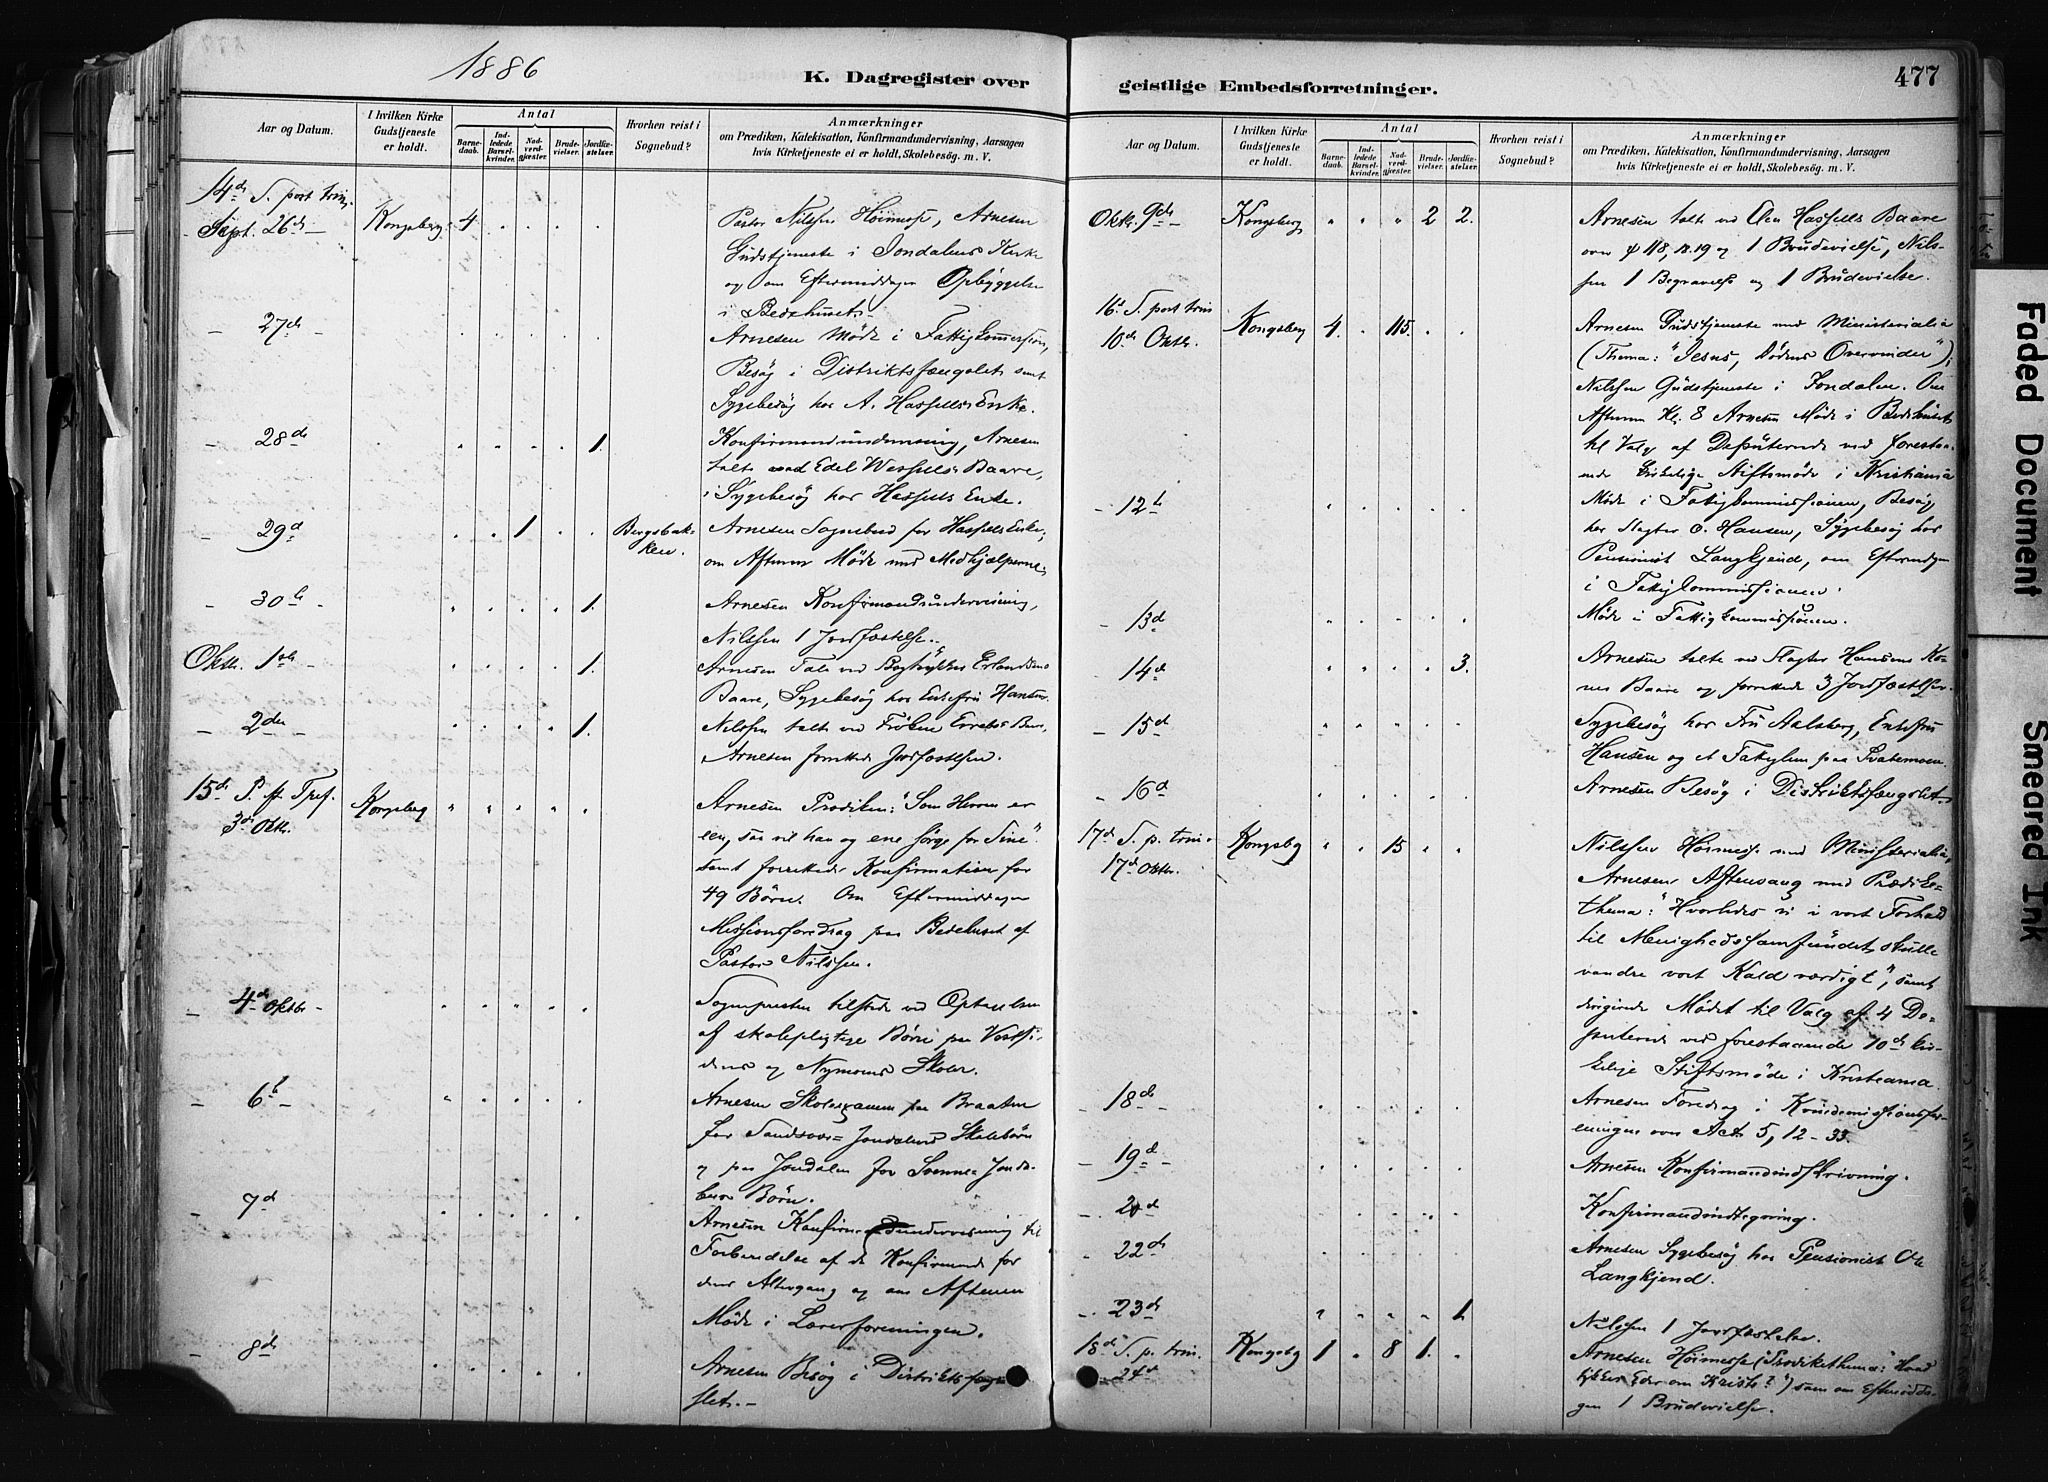 1886
K. Dagregister over
Aar og Datum.
I hvilken Kirke Gudstjeneste er holdt.
Antal
Barnedaab.
Indledede Barselkvinder.
Nadverdgjæster.
Brudevielser.
Jordfæstelser.
Hvorhen reist i Sognebud?
Anmærkninger
om Prædiken, Katekisation, Konfirmandundervisning, Aarsagen
hvis Kirketjeneste ei er holdt, Skolebesøg. m. V.
14de S. post trin.
Sept. 26de Kongsberg 4. Pastor Nilssen Høimesse, Arnesen
Gudstjeneste i Jondalens Kirke
og om Eftermiddagen Opbyggelse
i Bedehuset.
27de Arnesen Møde i Fattigkommission,
Besøg i Distriktsfængslet samt
Sygebesøg hos A. Hassels Enke.
28de 1. Konfirmandundervisning, Arnesen
talte ved Edel Baare,
Sygebesøg hos Hassels Enke.
29de 1 Bergsbakken. Arnesen Sognebud for Hassels Enke,
om Aftenen Møde med Medhjælperne.
30te 1. Arnesen Konfirmandundervisning,
Nilssen 1 Jordfæstelse.
Oktbr. 1ste 1. Arnesen Tale ved Erlandsens
Baare, Sygebesøg hos Enkefru Hansen.
2den 1. Nilssen talte ved Frøken Baare,
Arnesen forrettede Jordfæstelsen.
15de S. p. Tref.
3de Oktbr. Kongsberg Arnesen Prædiken: "Som Herren er
een, saa vil han og ene sørge for Sine"
samt forrettede Konfirmation for
49 Børn. Om Eftermiddagen
Missionsforedrag paa Bedehuset af
Pastor Nilssen.
4de Oktbr. Sognepresten tilstede ved Optagelsen
af skolepligtige Børn paa Vestsidens
og Nymoens Skoler.
6te Arnesen Skoleexamen paa Braaten
for Sandsvær-Jondalens Skolebørn
og paa Jondalen for
Børn.
7de Arnesen Konfirmandundervisning til
Forberedelse af de Konfirmerede for
deres Altergang og om Aftenen
Møde i Lærerforeningen.
8de Arnesen Besøg i Distriktsfængslet.
geistlige Embedsforretninger.
477
Aar og Datum.
I hvilken Kirke Gudstjeneste er holdt.
Antal
Barnedaab.
Indledede Barselkvinder.
Nadverdgjæster.
Brudevielser.
Jordfæstelser.
Hvorhen reist i Sognebud?
Anmærkninger
om Prædiken, Katekisation, Konfirmandundervisning, Aarsagen
hvis Kirketjeneste ei er holdt, Skolebesøg. m. V.
Oktbr. 9de Kongsberg 2 2. Arnesen talte ved Elen Hassels Baare
over ψ 118, 18.19 og 1 Brudevielse, Nilssen
1 Begravelse og 1 Brudevielse.
16de S. post trin
10de Oktbr. Kongsberg 4. 115. Arnesen Gudstjeneste med Ministerialia
(Thema: "Jesus, Dødens Overvinder");
Nilssen Gudstjeneste i Jondalen. Om
Aftenen Kl. 8 Arnesen Møde i Bedehuset
til Valg af Deputerede ved forestaaende
kirkelige Stiftsmøde i Kristiania
12te Møde i Fattigkommissionen, Besøg
hos Slagter O. Hansen, Sygebesøg hos
Pensionist Langkjend, om Eftermidgen
i Fattigkommissionen.
13de Møde i Fattigkommissionen.
14de 3. Arnesen talte ved Slagter Hansens Kones
Baare og forrettede 3 Jordfæstelser.
15de Sygebesøg hos Fru Aalsberg, Enkefru
Hansen og et Fattiglem paa
16de Arnesen Besøg i Distriktsfængslet.
17de S. p. trin.
17de Oktbr. Kongsbg 15 Nilssen Høimesse med Ministerialia,
Arnesen Aftensang med Prædikethema:
"Hvorledes vi i vort Forhold
til Menighedssamfundet skulle
vandre vort Kald værdigt", samt
dirigerede Mødet til Valg af 4 Deputerede
ved forestaaende 10de kirkelige
Stiftsmøde i Kristiania.
18de Arnesen Foredrag i Kvindemissionsforeningen
over Act. 5, 12-33.
19de Arnesen Konfirmandindskrivning.
20de Konfirmandindtegning.
22de Arnesen Sygebesøg hos Pensionist Ole
Langkjend.
23de 1. Nilssen 1 Jordfæstelse.
18de S. p. trin.
24de Kongsbg 1 8 1. Arnesen Høimesse (Prædikethema: Hvad
tykkes Eder om Kristo?") samt om Eftermiddagen
1 Brudevielse.
Faded Document
Smeared Ink